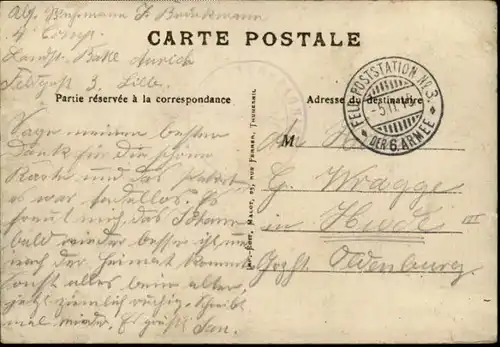 Abs. Wehrmann J. Brockmann
4 Comp.
Landst. Batl. Aurich
Feldpost 3. Lille.
CARTE POSTALE
Partie réservée à la correspondance
Adresse du destinataire
FELDPOSTSTATION No 3.
DER 6. ARMEE
Sage meinen besten
Dank für die schöne
Karte und das Paket
es war tadellos. Es
freut mich das Johann
bald wieder besser ist,
nach der Heimat kommt
sonst alles beim alten,
jetzt ziemlich ruhig. Schreibt
mal wieder. Es grüßt Jan.
M
G. Wragge
in Hude III
Grßh. Oldenburg.